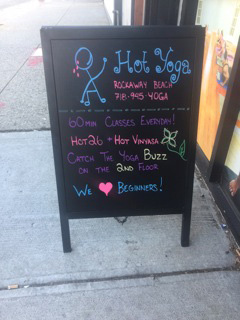 Hot Yoga
ROCKAWAY BEACH
718-945-YOGA
60MIN CLASSES EVERYDAY!
HOT26 + HOT VINYASA
CATCH THE YOGA BUZZ
ON THE 2ND FLOOR
WE ❤ BEGINNERS!